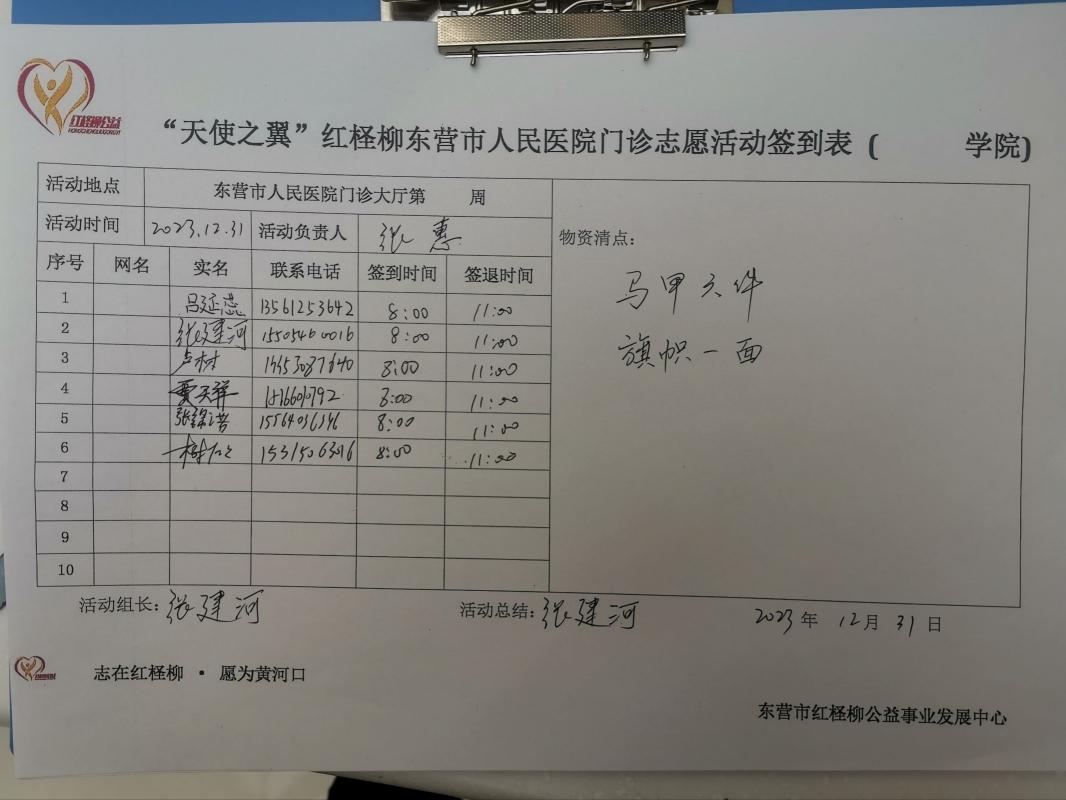 红柽柳公益
HONGCHENGLIUGONGYI
“天使之翼”红柽柳东营市人民医院门诊志愿活动签到表 ( 学院)
活动地点 东营市人民医院门诊大厅第 周
活动时间 2023.12.31 活动负责人 张惠
物资清点：
序号 网名 实名 联系电话 签到时间 签退时间
马甲六件
旗帜一面
1 吕延蕊 13561253642 8:00 11:00
2 张建河 15505460016 8:00 11:00
3 卢材 8:00 11:00
4 贾天祥 8:00 11:00
5 8:00 11:00
6 8:00 11:00
7
8
9
10
活动组长：张建河 活动总结：张建河 2023年 12月 31日
志在红柽柳 · 愿为黄河口
东营市红柽柳公益事业发展中心